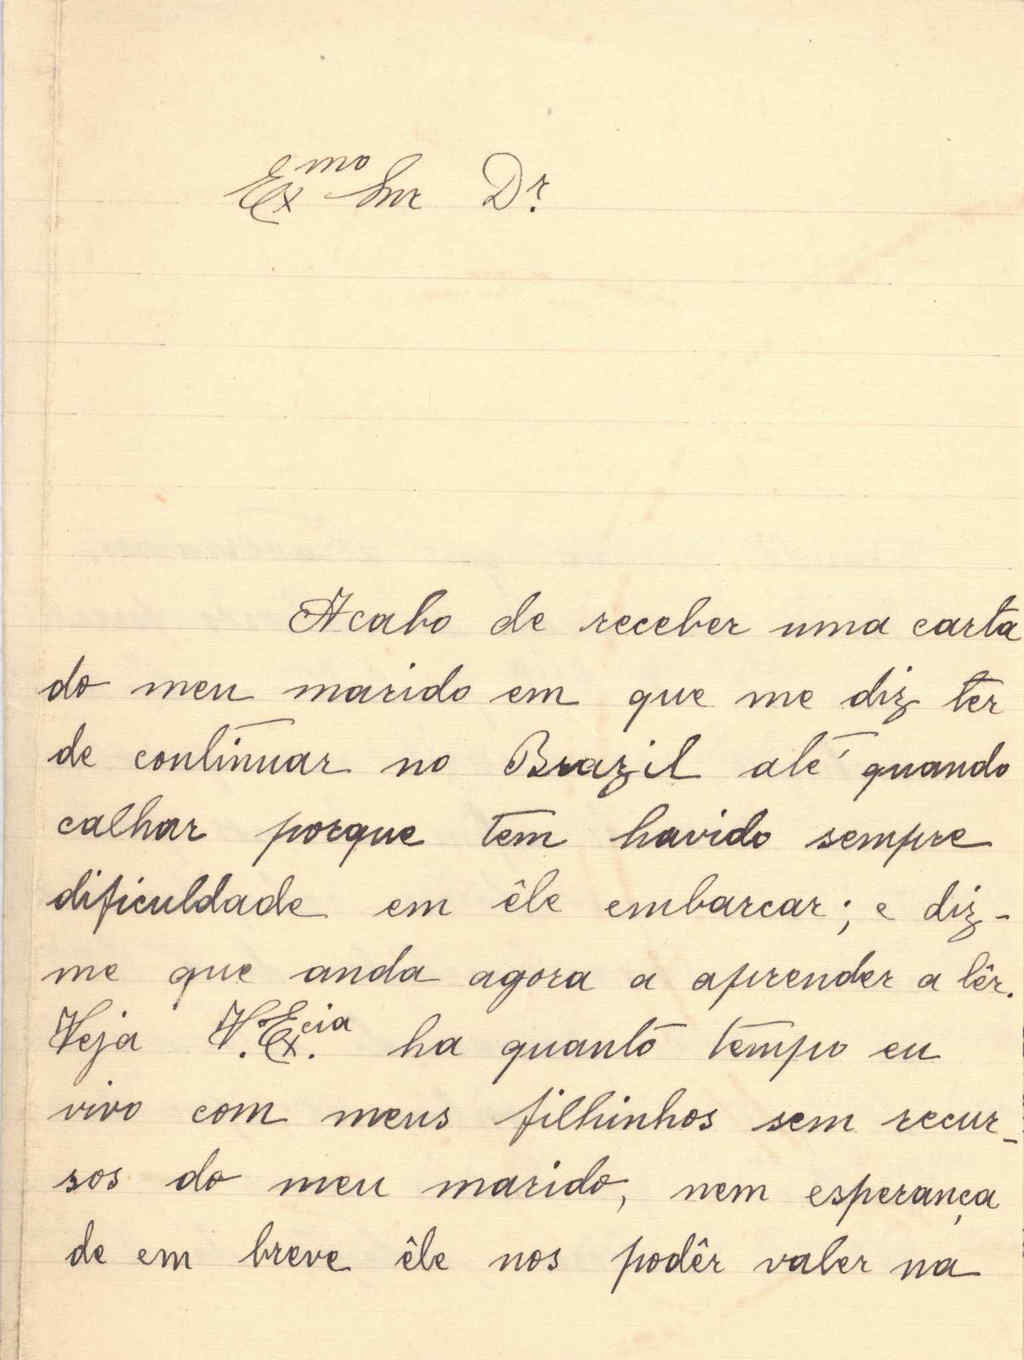 Exmo Snr Dr.
Acabo de receber uma carta
do meu marido em que me diz ter
de continuar no Brazil até quando
calhar porque tem havido sempre
dificuldade em êle embarcar; e diz-
me que anda agora a aprender a lêr.
Veja V. Ex.cia ha quanto tempo eu
vivo com meus filhinhos sem recur-
sos do meu marido, nem esperança
de em breve êle nos podêr valer na